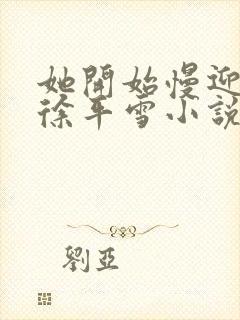 她開始慢迎
徐平雪小說
劉亞